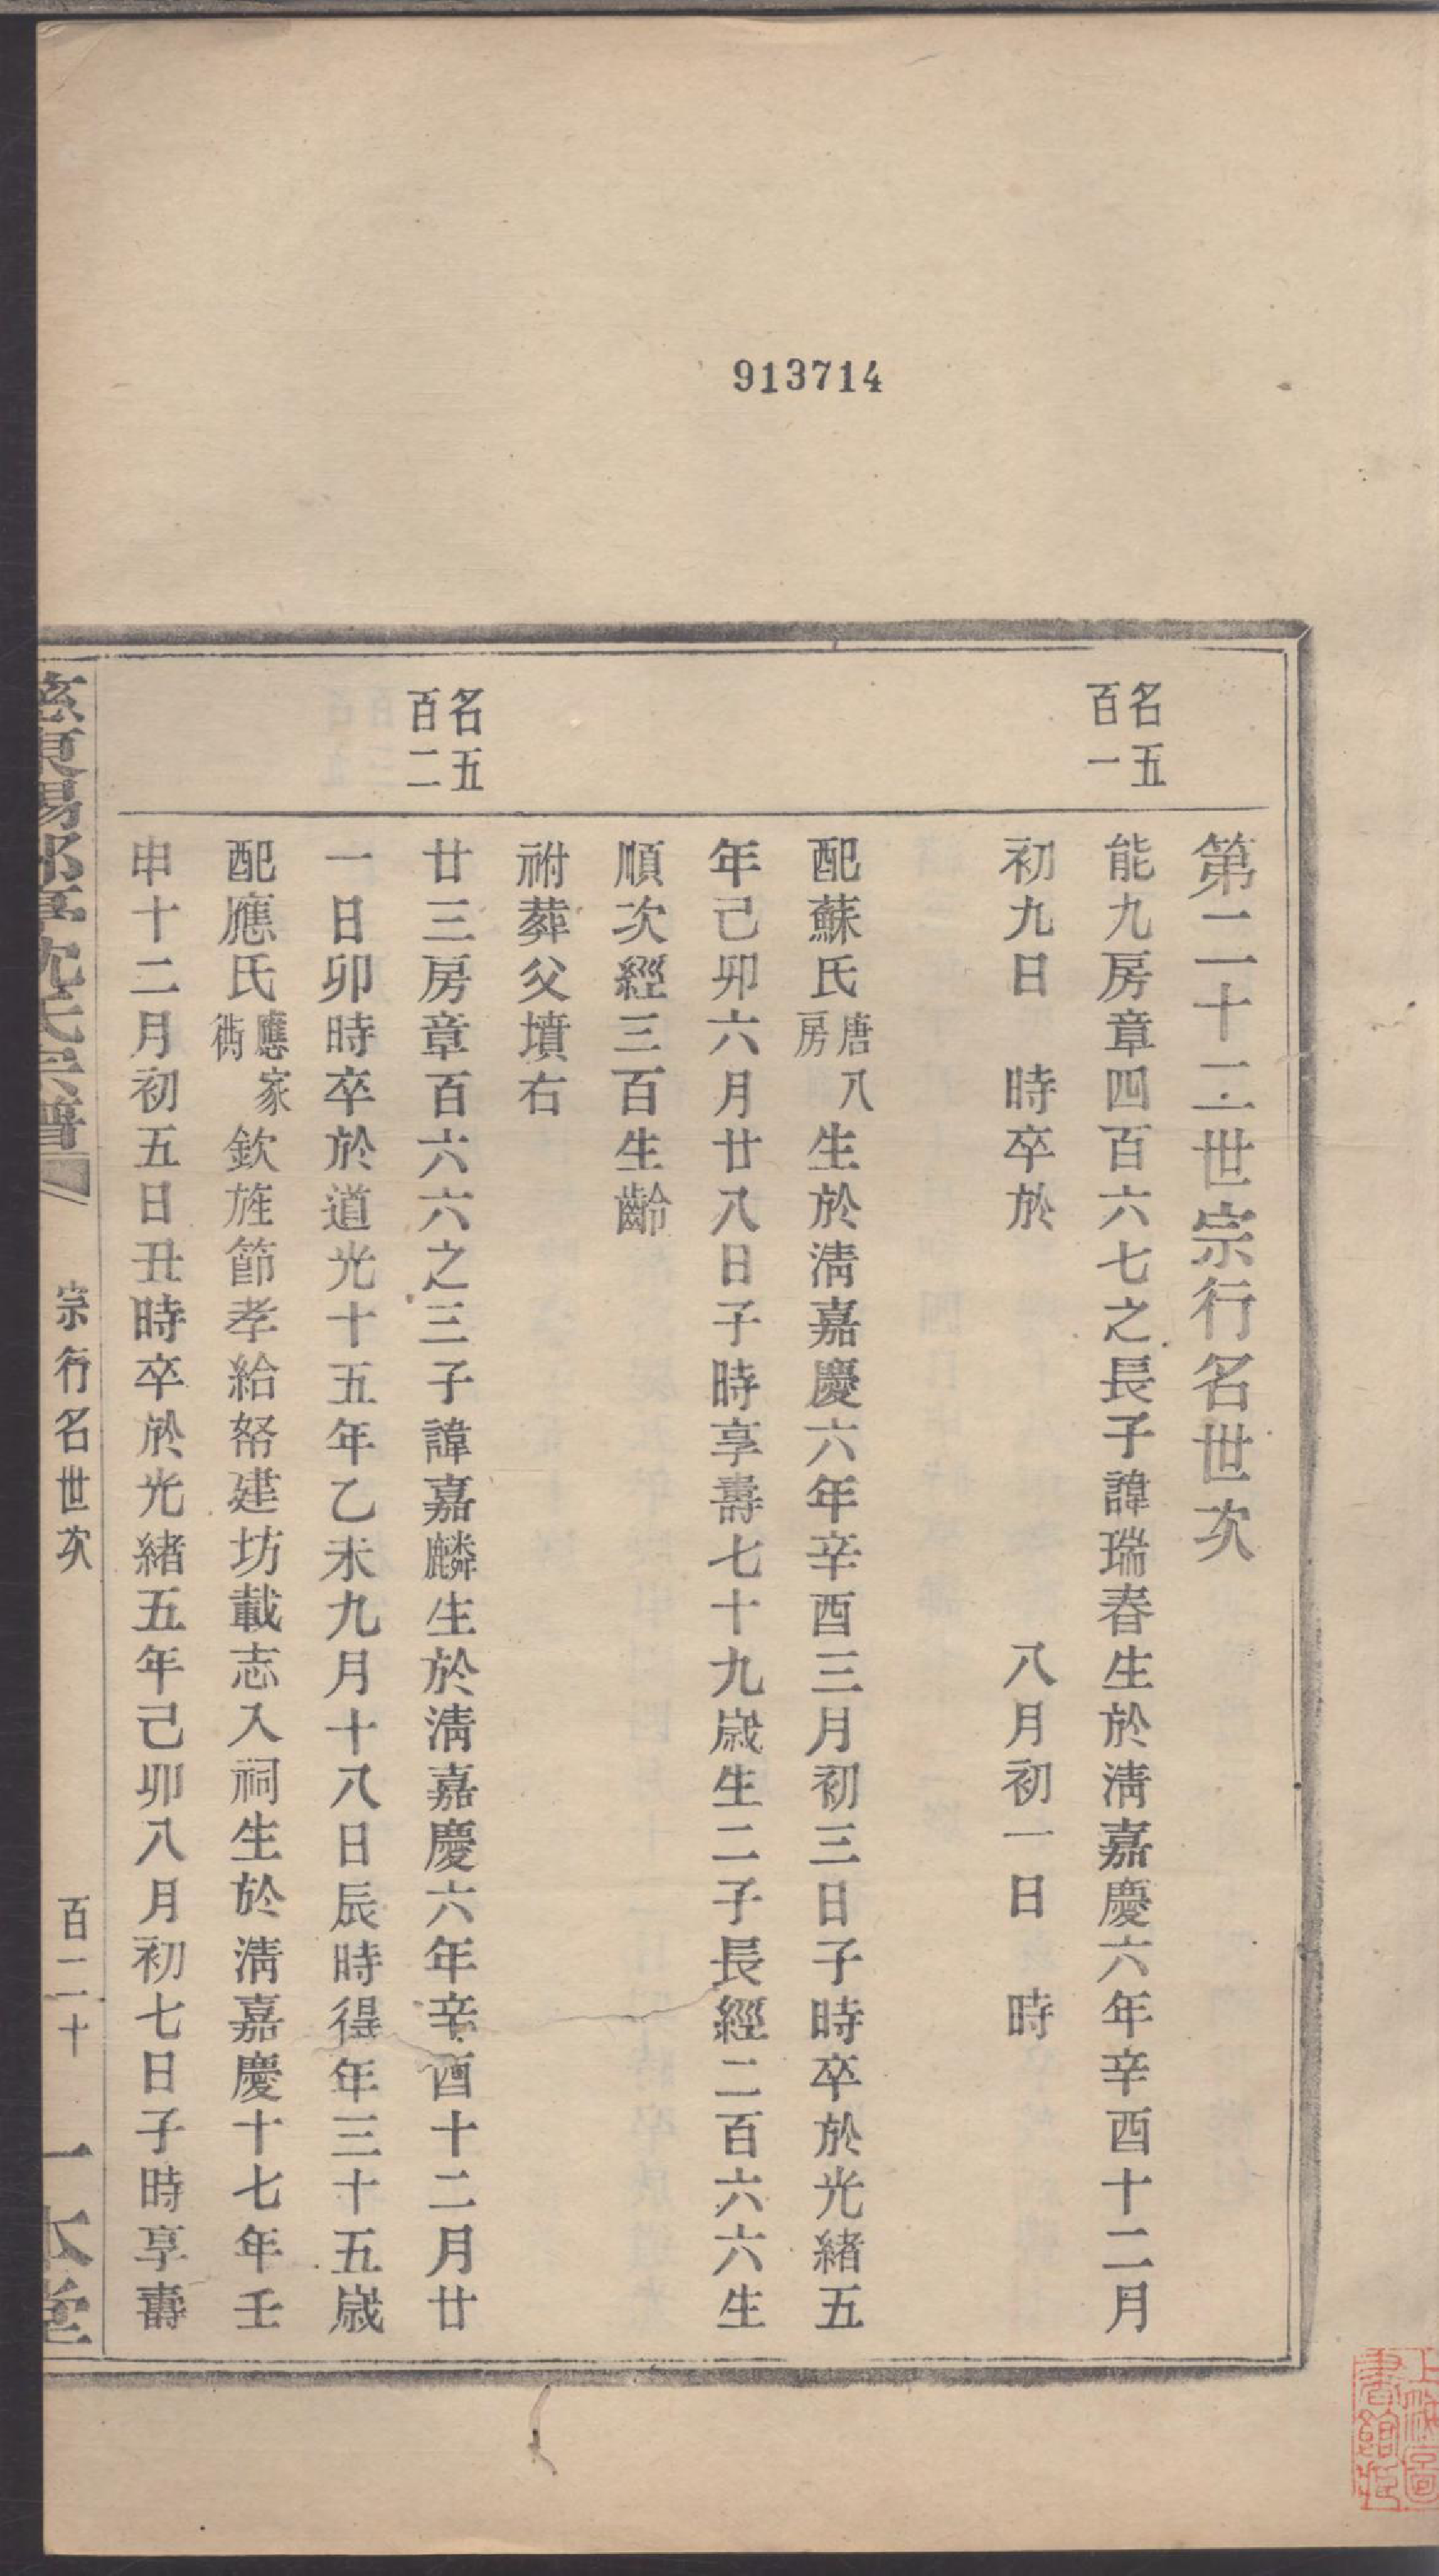 913714
第二十二世宗行名世次
名五
百一
能九房章四百六七之長子諱瑞春生於淸嘉慶六年辛酉十二月
初九日　時卒於　八月初一日　時
配蘇氏唐八房生於淸嘉慶六年辛酉三月初三日子時卒於光緖五
年己卯六月廿八日子時享壽七十九歲生二子長經二百六六生
順次經三百生齡
祔葬父墳右
名五
百二
廿三房章百六六之三子諱嘉麟生於淸嘉慶六年辛酉十二月廿
一日卯時卒於道光十五年乙未九月十八日辰時得年三十五歲
配應氏應家衖欽旌節孝給帑建坊載志入祠生於淸嘉慶十七年壬
申十二月初五日丑時卒於光緖五年己卯八月初七日子時享壽
慈東 沈氏宗譜
宗行名世次
百二十
一本堂
上海圖書館藏